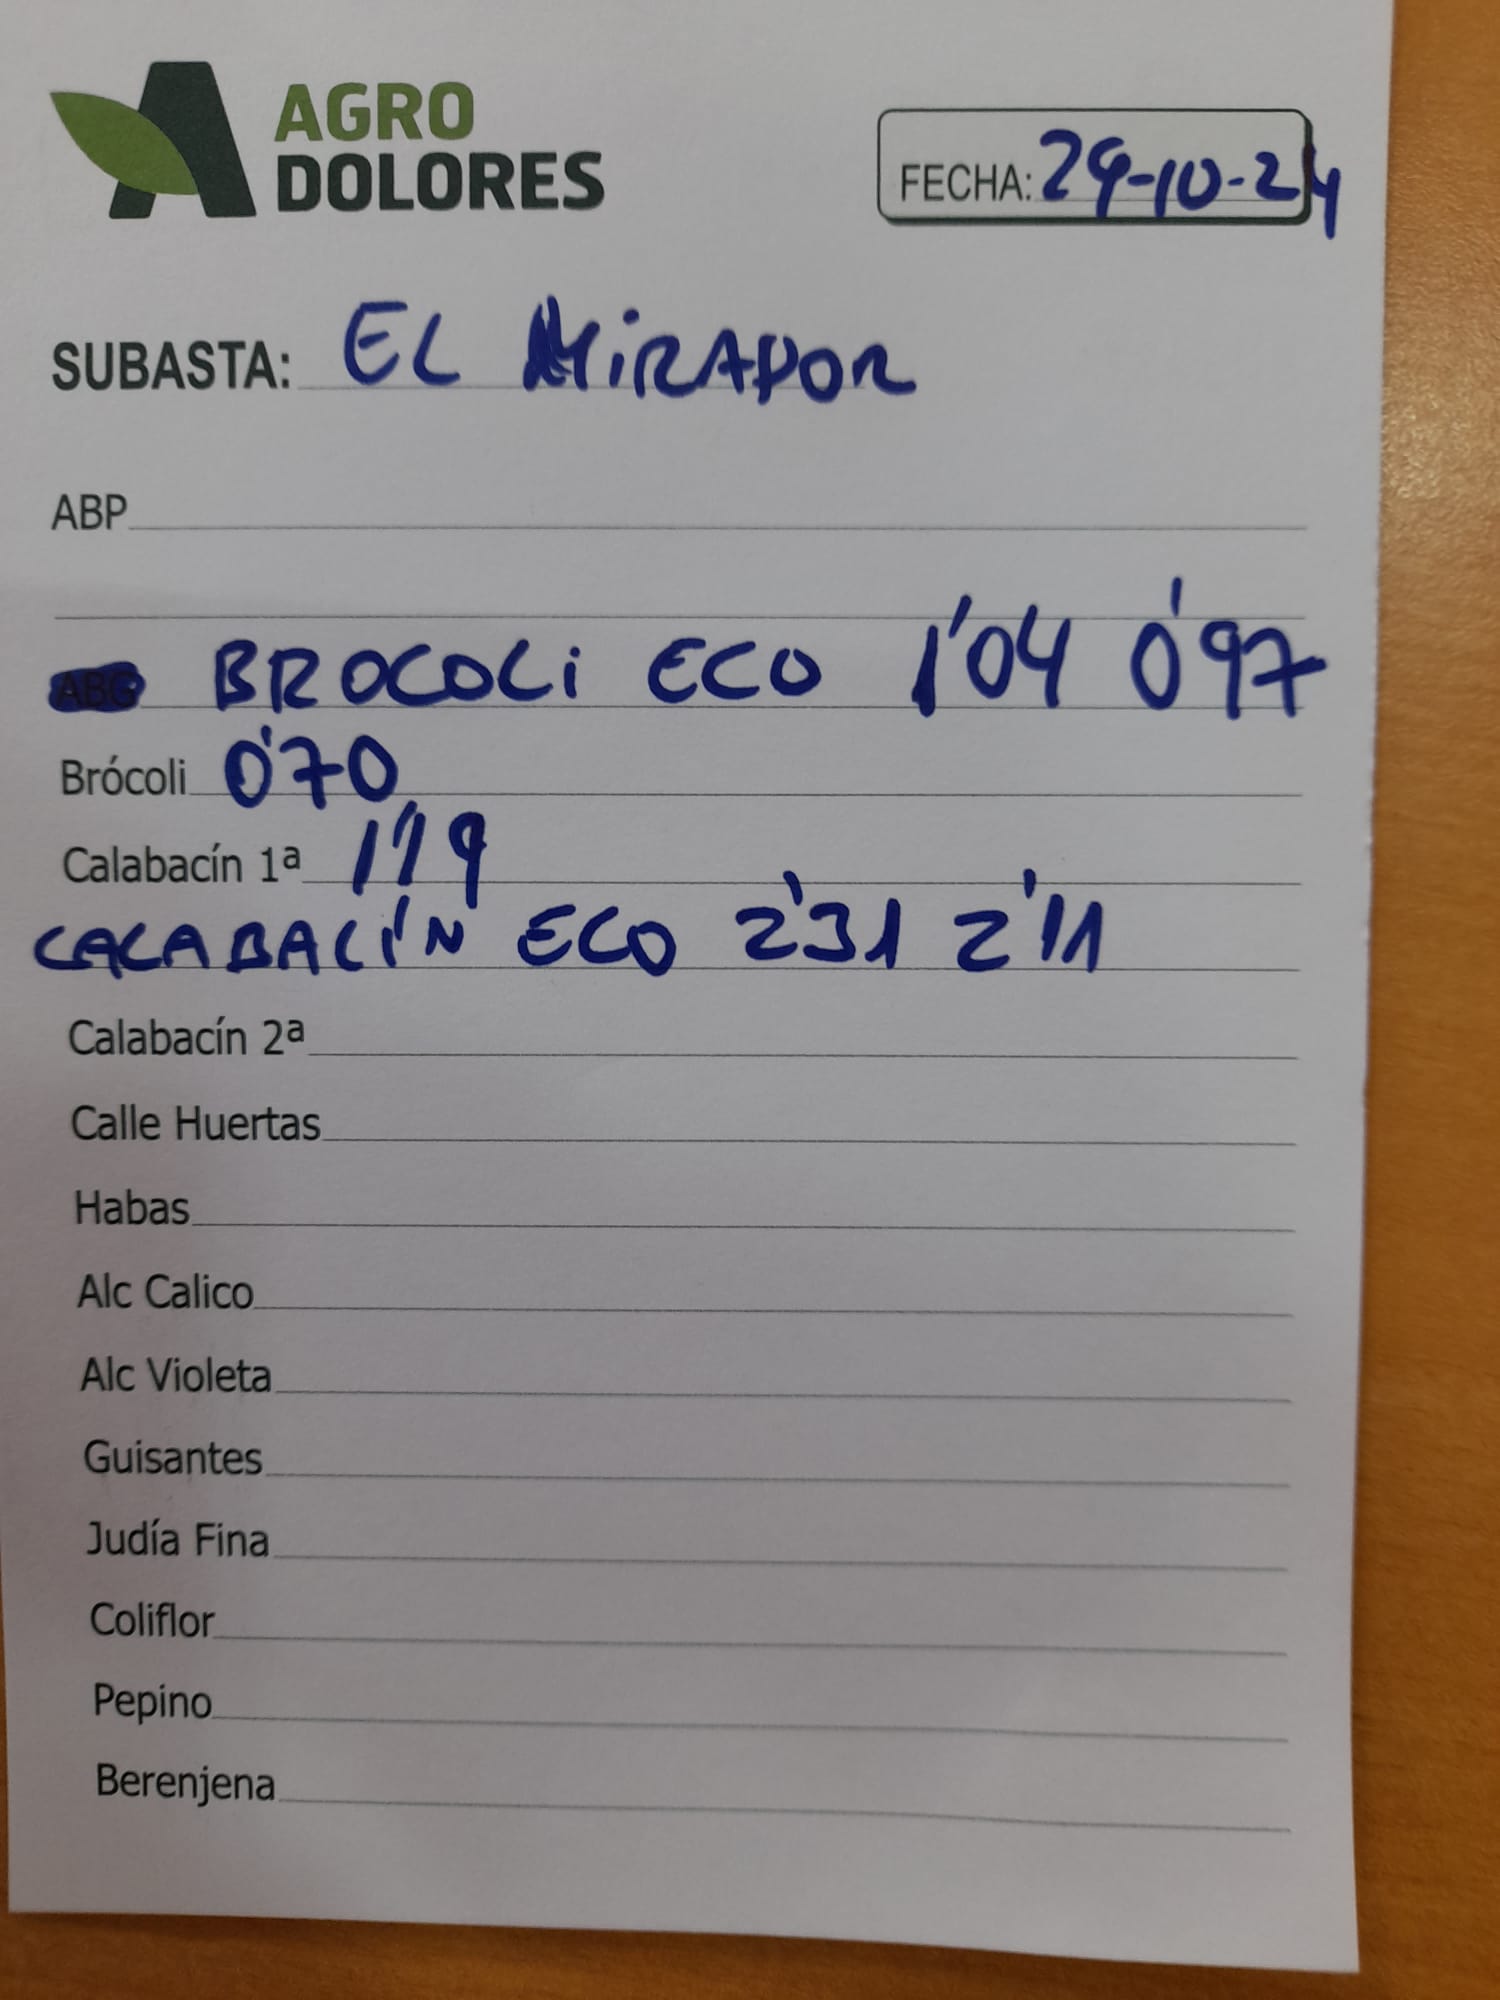 AGRO
DOLORES
FECHA: 29-10-24
SUBASTA: EL MIRADOR
ABP
ABG BROCOLI ECO 1'04 0'97
Brócoli 0'70
Calabacín 1ª 1'19
CALABACÍN ECO 2'31 2'11
Calabacín 2ª
Calle Huertas
Habas
Alc Calico
Alc Violeta
Guisantes
Judía Fina
Coliflor
Pepino
Berenjena